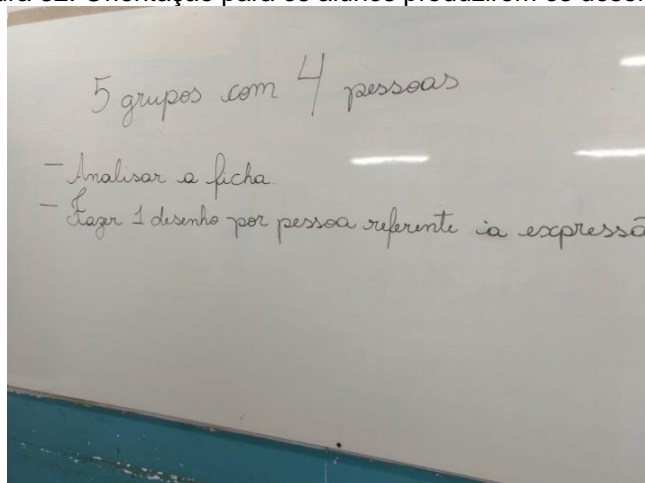 5 grupos com 4 pessoas
- Analisar a ficha.
- Fazer 1 desenho por pessoa referente à